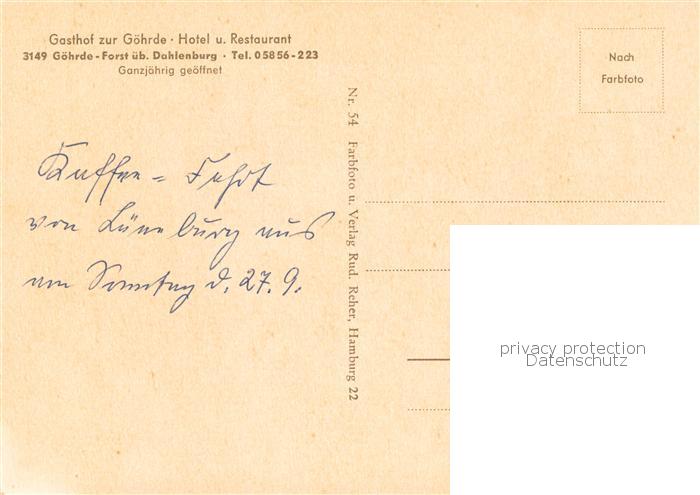 Gasthof zur Göhrde · Hotel u. Restaurant
3149 Göhrde - Forst üb. Dahlenburg · Tel. 05856-223
Ganzjährig geöffnet
Kaffee = Fahrt
von Lüneburg aus
am Sonntag d. 27. 9.
Nr. 54 Farbfoto u. Verlag Rud. Reher, Hamburg 22
Nach
Farbfoto
privacy protection
Datenschutz